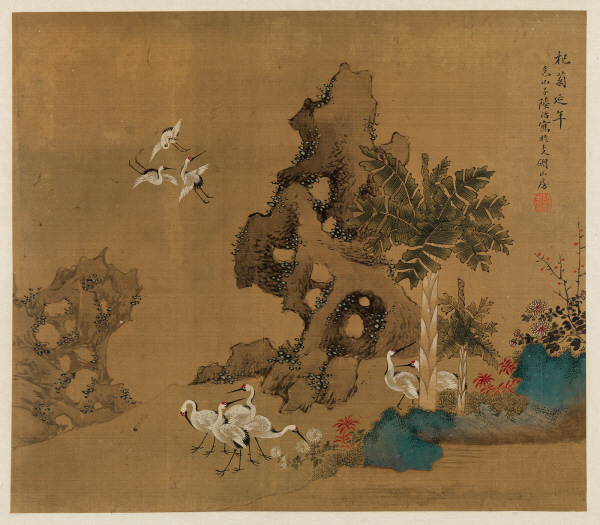 杞菊延年
包山子陸治寫於支硎山房